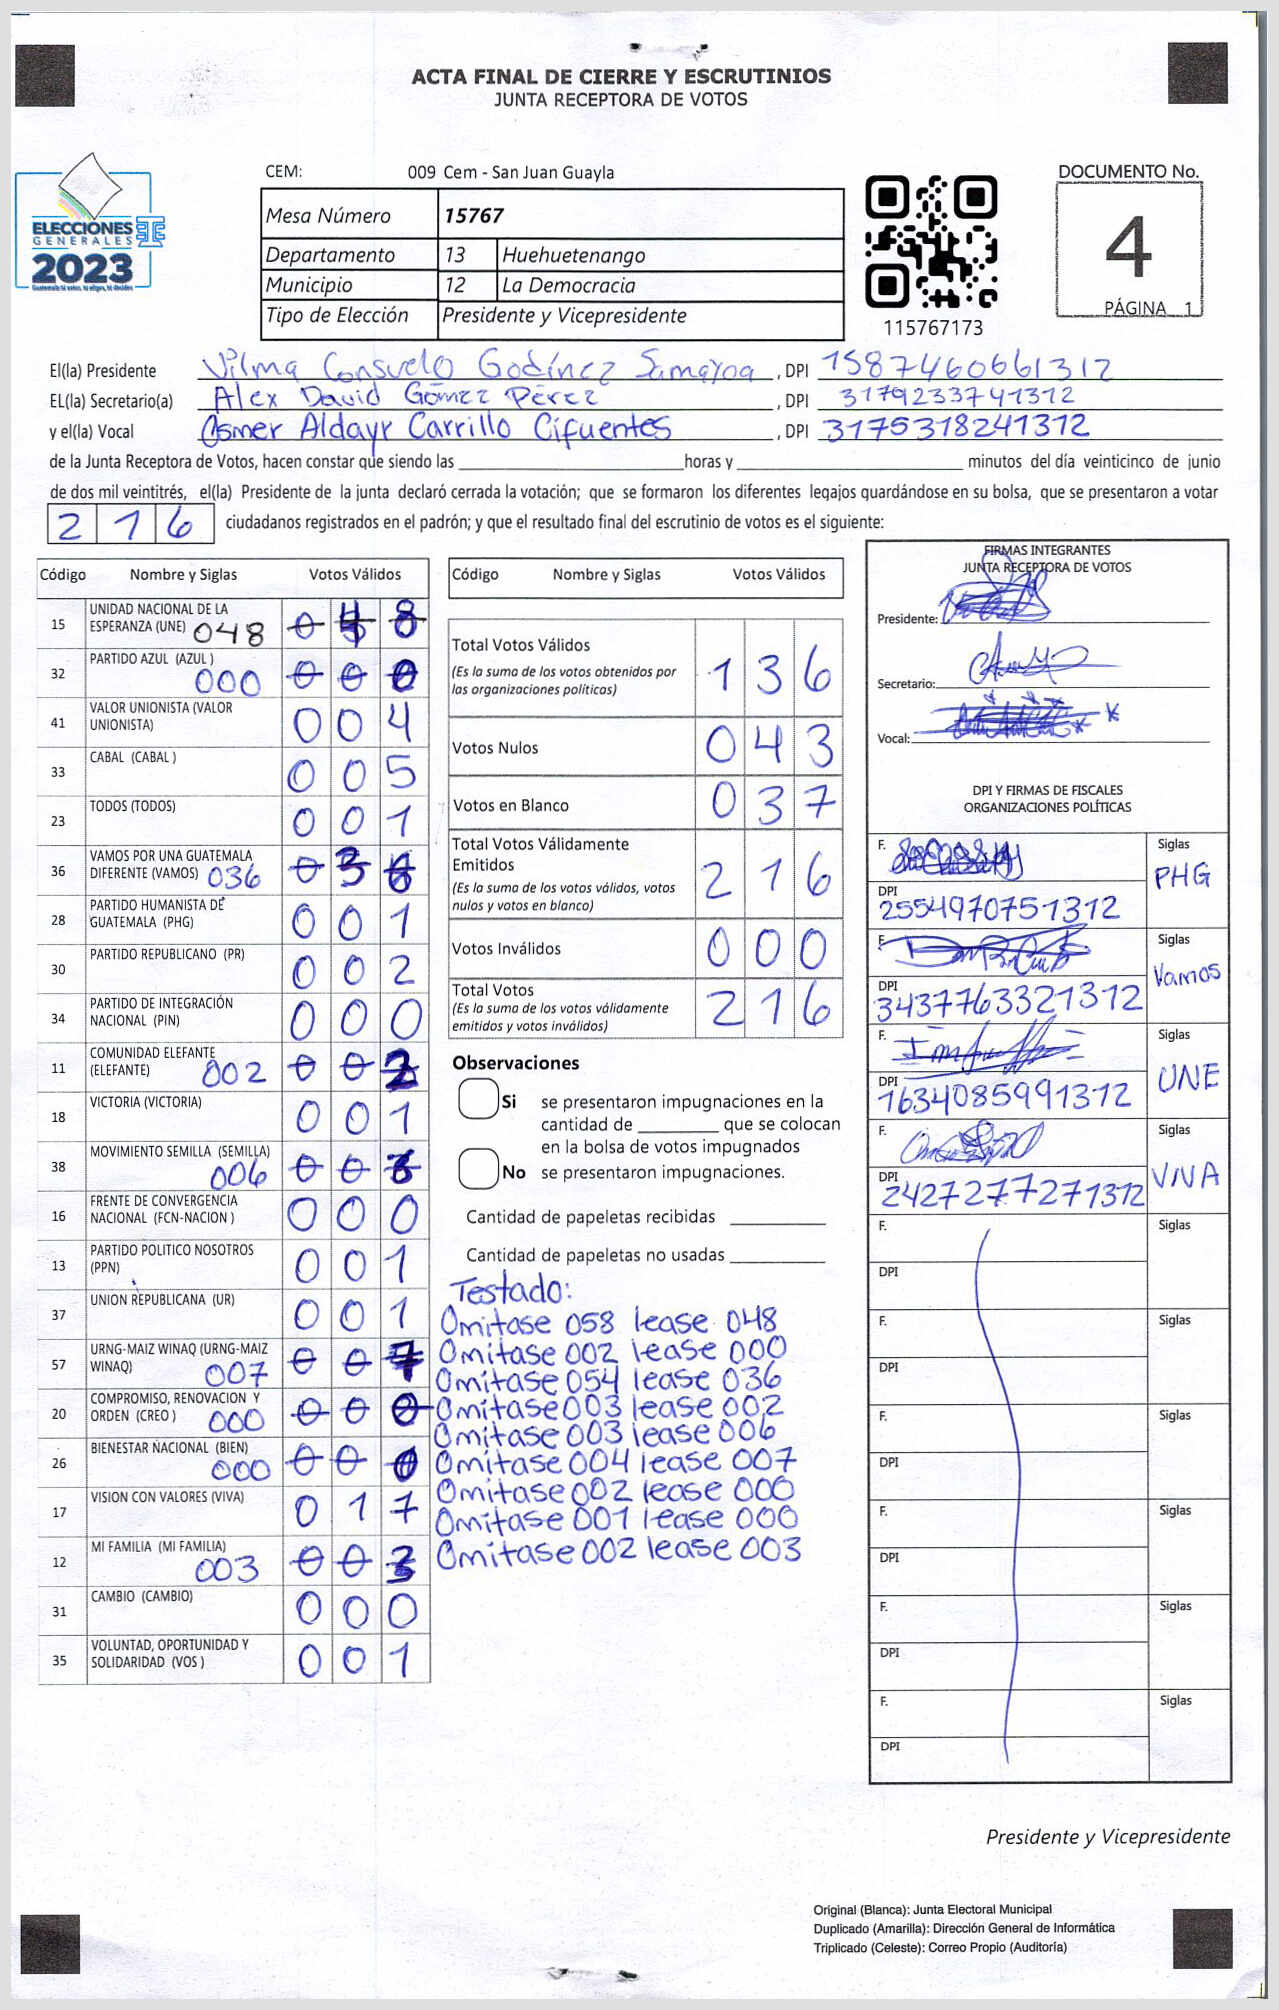 ACTA FINAL DE CIERRE Y ESCRUTINIOS
JUNTA RECEPTORA DE VOTOS
ELECCIONES
GENERALES
2023
CEM: 009 Cem - San Juan Guayla
Mesa Número 15767
Departamento 13 Huehuetenango
Municipio 12 La Democracia
Tipo de Elección Presidente y Vicepresidente
115767173
DOCUMENTO No.
4
PÁGINA 1
El(la) Presidente Vilma Consuelo Godínez Samayoa, DPI 1587460661312
EL(la) Secretario(a) Alex David Gómez Pérez, DPI 3179233741312
y el(la) Vocal Osmer Aldayr Carrillo Cifuentes, DPI 3175318241312
de la Junta Receptora de Votos, hacen constar que siendo las horas y minutos del día veinticinco de junio
de dos mil veintitrés, el(la) Presidente de la junta declaró cerrada la votación; que se formaron los diferentes legajos quardándose en su bolsa, que se presentaron a votar
216 ciudadanos registrados en el padrón; y que el resultado final del escrutinio de votos es el siguiente:
Código Nombre y Siglas Votos Válidos
15 UNIDAD NACIONAL DE LA
ESPERANZA (UNE) 048
32 PARTIDO AZUL (AZUL )
000 000
41 VALOR UNIONISTA (VALOR
UNIONISTA) 004
33 CABAL (CABAL ) 005
23 TODOS (TODOS) 001
36 VAMOS POR UNA GUATEMALA
DIFERENTE (VAMOS) 036
28 PARTIDO HUMANISTA DE
GUATEMALA (PHG) 001
30 PARTIDO REPUBLICANO (PR) 002
34 PARTIDO DE INTEGRACIÓN
NACIONAL (PIN) 000
11 COMUNIDAD ELEFANTE
(ELEFANTE) 002 002
18 VICTORIA (VICTORIA) 001
38 MOVIMIENTO SEMILLA (SEMILLA)
006
16 FRENTE DE CONVERGENCIA
NACIONAL (FCN-NACION ) 000
13 PARTIDO POLITICO NOSOTROS
(PPN) 001
37 UNION REPUBLICANA (UR) 001
57 URNG-MAIZ WINAQ (URNG-MAIZ
WINAQ) 007
20 COMPROMISO, RENOVACION Y
ORDEN (CREO ) 000 000
26 BIENESTAR NACIONAL (BIEN)
000
17 VISION CON VALORES (VIVA) 017
12 MI FAMILIA (MI FAMILIA)
003 003
31 CAMBIO (CAMBIO) 000
35 VOLUNTAD, OPORTUNIDAD Y
SOLIDARIDAD (VOS ) 001
Código Nombre y Siglas Votos Válidos
Total Votos Válidos
(Es la suma de los votos obtenidos por
las organizaciones políticas) 136
Votos Nulos 043
Votos en Blanco 037
Total Votos Válidamente
Emitidos
(Es la suma de los votos válidos, votos
nulos y votos en blanco) 216
Votos Inválidos 000
Total Votos
(Es la suma de los votos válidamente
emitidos y votos inválidos) 216
Observaciones
Si se presentaron impugnaciones en la
cantidad de que se colocan
en la bolsa de votos impugnados
No se presentaron impugnaciones.
Cantidad de papeletas recibidas
Cantidad de papeletas no usadas
Testado:
Omitase 058 lease 048
Omitase 002 lease 000
Omitase 054 lease 036
Omitase 003 lease 002
Omitase 003 lease 006
Omitase 004 lease 007
Omitase 002 lease 000
Omitase 001 lease 000
Omitase 002 lease 003
FIRMAS INTEGRANTES
JUNTA RECEPTORA DE VOTOS
Presidente:
Secretario:
Vocal:
DPI Y FIRMAS DE FISCALES
ORGANIZACIONES POLÍTICAS
F. Siglas
PHG
DPI
2554970751312
F. Siglas
Vamos
DPI
3437763321312
F. Siglas
UNE
DPI
1634085991312
F. Siglas
VIVA
DPI
2427277271312
F. Siglas
DPI
F. Siglas
DPI
F. Siglas
DPI
F. Siglas
DPI
F. Siglas
DPI
F. Siglas
DPI
Presidente y Vicepresidente
Original (Blanca): Junta Electoral Municipal
Duplicado (Amarilla): Dirección General de Informática
Triplicado (Celeste): Correo Propio (Auditoría)